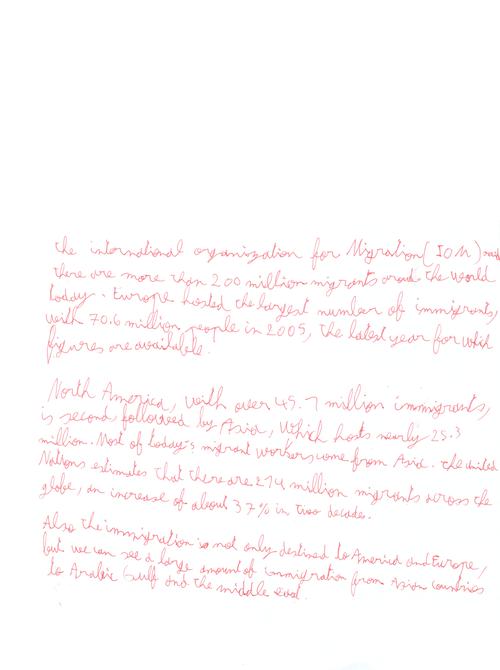 the international organization for Migration (IOM)
there are more than 200 million migrants around the world
today. Europe hosted the largest number of immigrants,
with 70.6 million people in 2005, the latest year for which
figures are available.
North America, with over 45.7 million immigrants,
is second, followed by Asia, which hosts nearly 25.3
million. Most of today's migrant workers come from Asia. the united
Nations estimates that there are 214 million migrants across the
globe, an increase of about 37% in two decades.
Also the immigration is not only destined to America and Europe,
but we can see a large amount of immigration from Asian countries
to Arabic Gulf and the middle east.